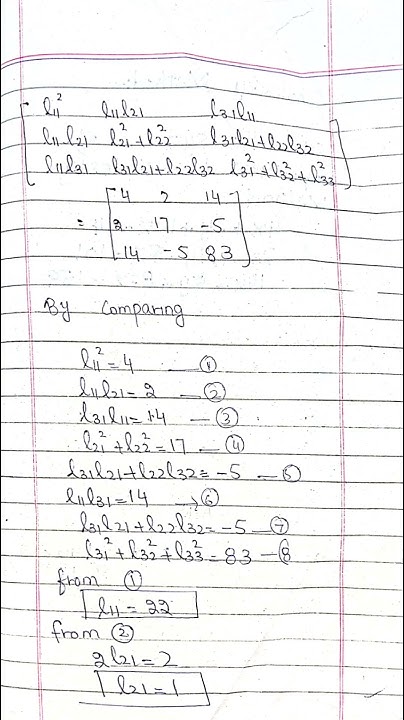 l₁₁² l₁₁l₂₁ l₃₁l₁₁
l₁₁l₂₁ l₂₁²+l₂₂² l₃₁l₂₁+l₂₂l₃₂
l₁₁l₃₁ l₃₁l₂₁+l₂₂l₃₂ l₃₁²+l₃₂²+l₃₃²
4 2 14
= 2 17 -5
14 -5 83
By Comparing
l₁₁² = 4 — ①
l₁₁l₂₁ = 2 — ②
l₃₁l₁₁ = 14 — ③
l₂₁²+l₂₂² = 17 — ④
l₃₁l₂₁+l₂₂l₃₂ = -5 — ⑤
l₁₁l₃₁ = 14 → ⑥
l₃₁l₂₁+l₂₂l₃₂ = -5 — ⑦
l₃₁²+l₃₂²+l₃₃² = 83 — ⑧
from ①
l₁₁ = 22
from ②
2l₂₁ = 2
l₂₁ = 1